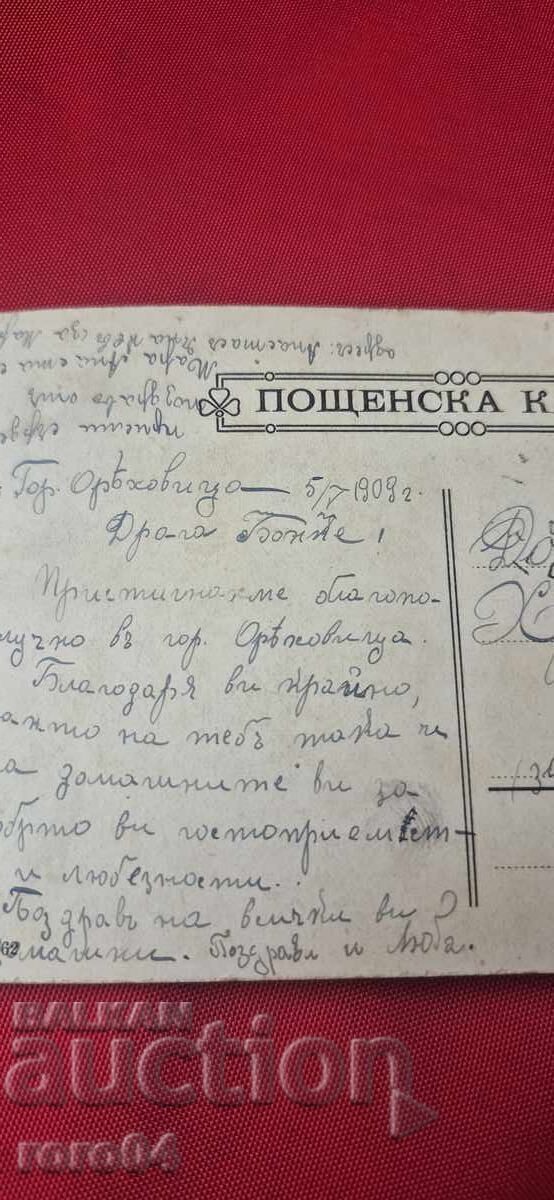 адресъ: Анастасъ
Мара
поздравъ отъ
приеми сърде
ПОЩЕНСКА К
Гор. Орѣховица — 5/7 1909 г.
Драга Бонке!
Пристигнахме благопо-
лучно въ гор. Орѣховица.
Благодаря ви крайно,
акто на тебъ така и
а домашните ви за
обрто ви гостоприемст-
и любезности..
Поздравъ на всички ви
омашни. Поздрави и Люба.
62
BALKAN
auction
roro04